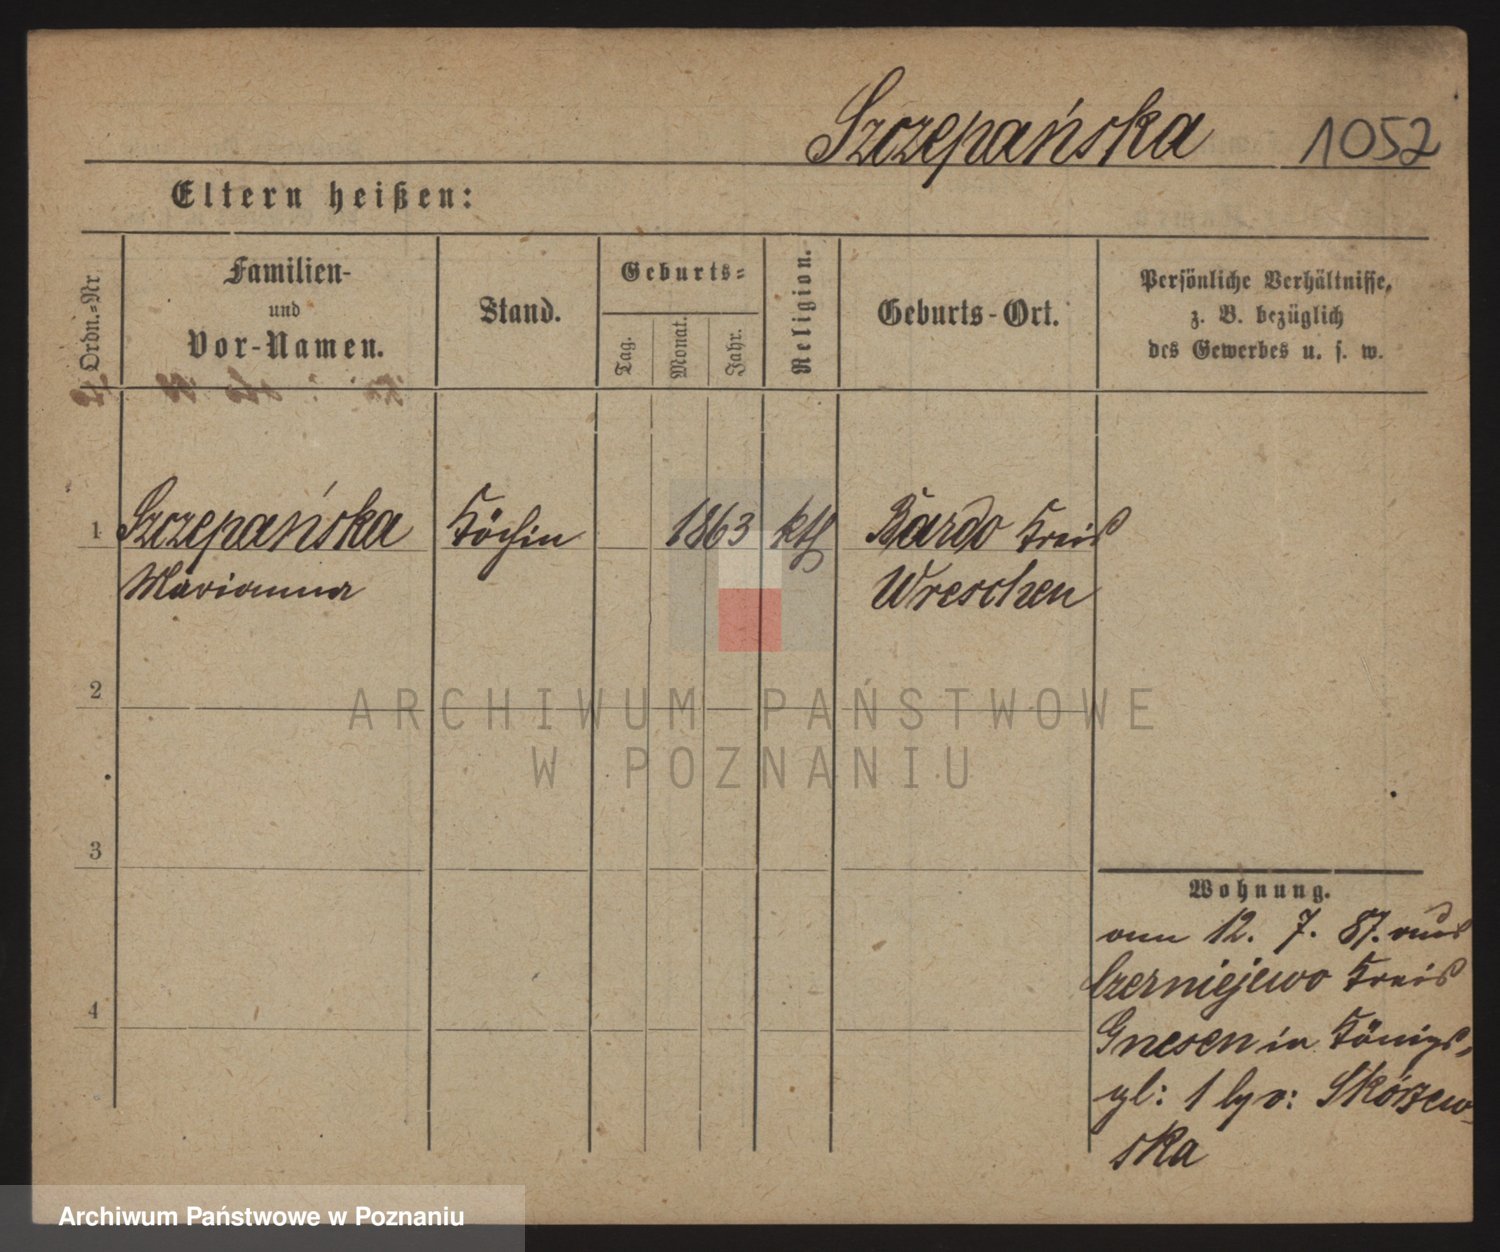 Szczepańska 1052
Eltern heißen:
Ordn.-Nr
Familien-
und
Vor-Namen.
Stand.
Geburts-
Tag.
Monat.
Jahr.
Religion.
Geburts-Ort.
Persönliche Verhältnisse,
z. B. bezüglich
des Gewerbes u. s. w.
1 Szczepańska Köchin 1863 kth Bardo Kreis
Marianna Wreschen
2
3
4
Wohnung.
am 12. 7. 87. aus
Czerniejewo Kreis
Gnesen in Königs-
pl: 1 Skórzew-
ska
ARCHIWUM PAŃSTWOWE
W POZNANIU
Archiwum Państwowe w Poznaniu